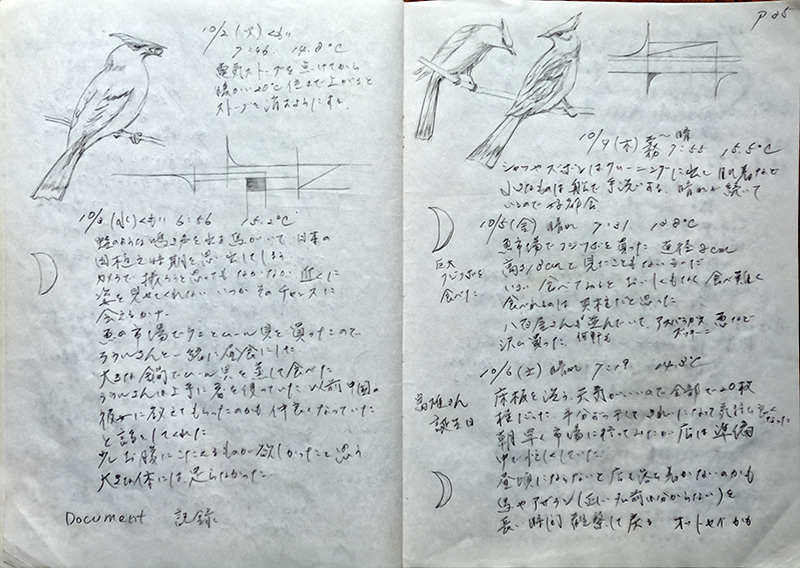 10/2 (火) くもり
7:46 14.8°C
電気ストーブを点けてから
暖かい20°C位まで上がると
ストーブを消すようにする
10/3 (水) くもり 6:56 15.2°C
のような鳴き声を出す鳥がいて 日本の
田植え時期を思い出してしまう
カメラで撮ろうと思ってもなかなか近くに
姿を見せてくれない いつかそのチャンスに
会えるかな
魚の市場でタコとムール貝を買ったので
さんと一緒に昼食にした
大きな鍋でムール貝を蒸して食べた
さんは上手に箸を使っていた 以前中国の
彼女に教えてもらったのかも 仲良くなっていた
と話をしてくれた
少しお腹にこたえるものが欲しかったと思う
大きな体には足らなかった
Document 記録
P 25
10/4 (木) 霧〜晴 7:55 15.5°C
シャツやズボンはクリーニングに出し 肌着など
小さなものは船で手洗する 晴れが続いて
いるので好都合
10/5 (金) 晴れ 7:21 13.8°C
魚市場でフジツボを買った 直径8cm
高さ18cmと見たこともない
食べてみるとおいしくもなく食べ難く
食べれるのは貝柱だと思った
八百屋さんも並んでいて、アスパラガス ズッキーニ 
沢山買った
巨大
フジツボを
食べた
10/6 (土) 晴れ 7:19 14.3°C
さん
誕生日
床板を洗う、天気がいいので全部で20枚
程だった 半分 干して きれいになって気持良くなった
朝早く市場に行ってみたが店は準備
中で忙しくしていた
昼頃にならないと店も落ち着かないのかも
鳥やアザラシ(正しい名前は分からない)を
長い時間観察して戻る オットセイかも